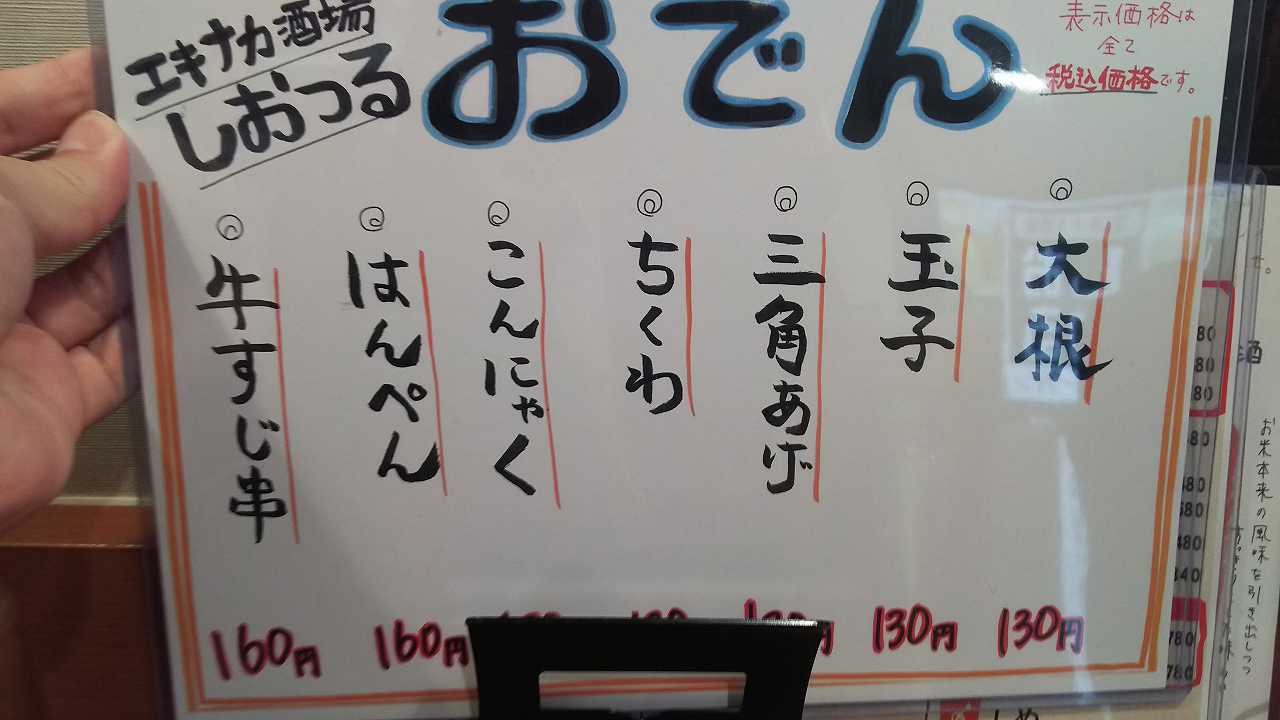 エキナカ酒場
しおつる
おでん
表示価格は
全て
税込価格です。
大根
130円
玉子
130円
三角あげ
ちくわ
こんにゃく
はんぺん
160円
牛すじ串
160円
酒
お米本来の風味を引き出しつつ
80
80
80
680
480
680
480
840
780
780